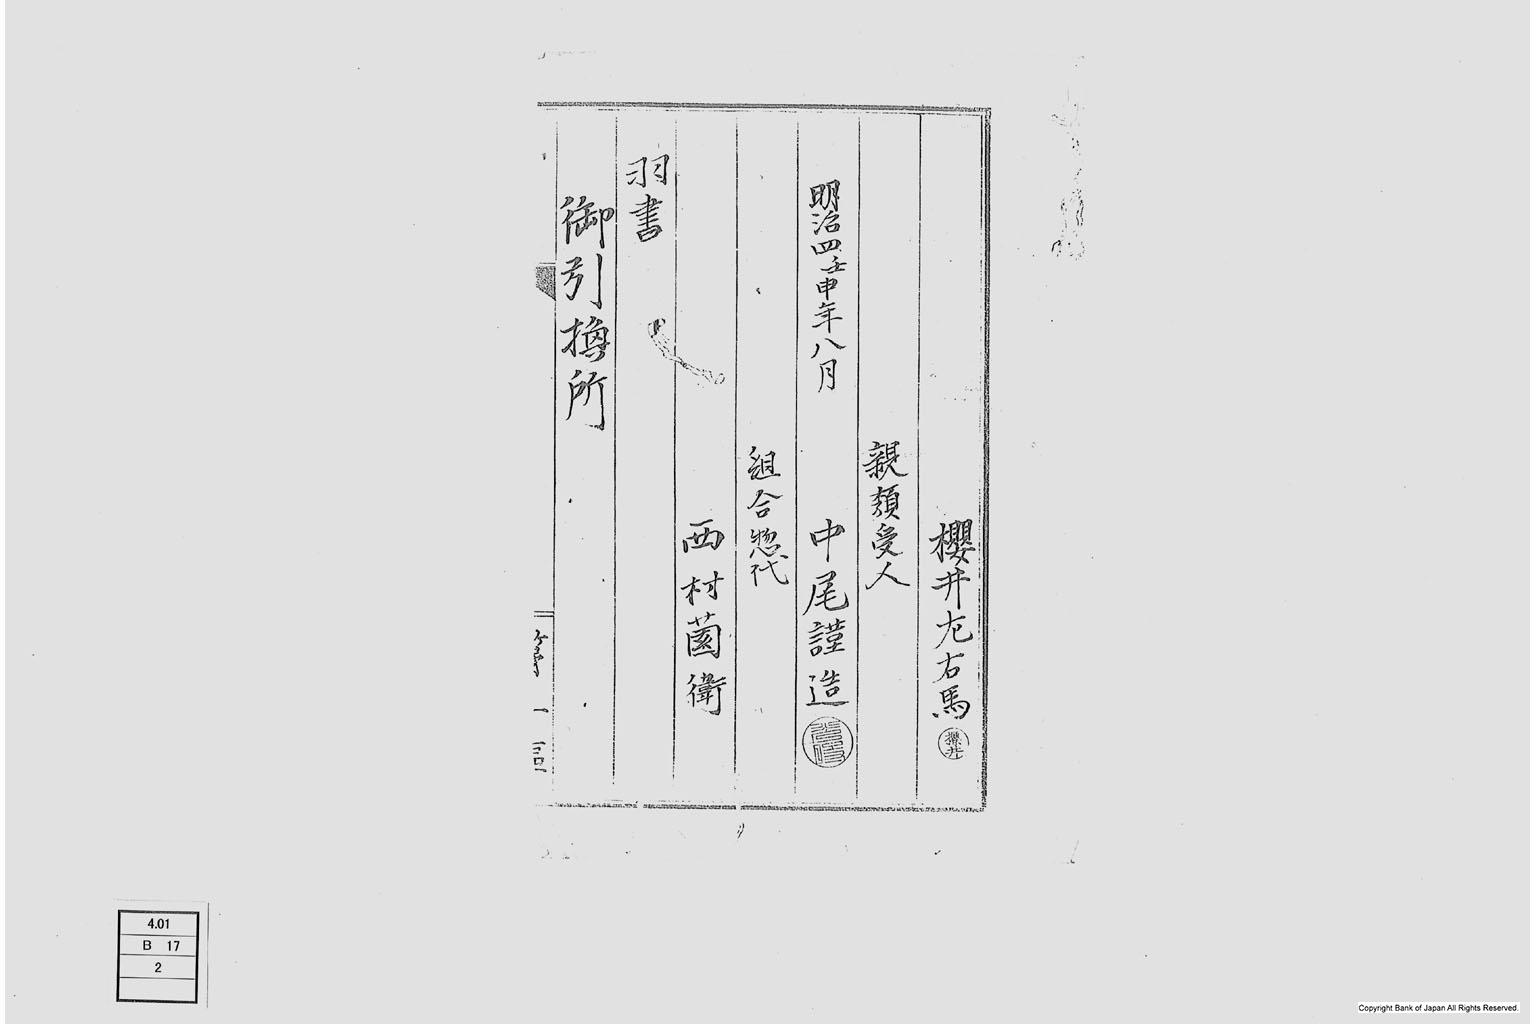 櫻井尤右馬
櫻井
親類受人
明治四壬申年八月
中尾謹造
組合惣代
西村薗衛
羽書
御引換所
4.01
B 17
2
Copyright Bank of Japan All Rights Reserved.